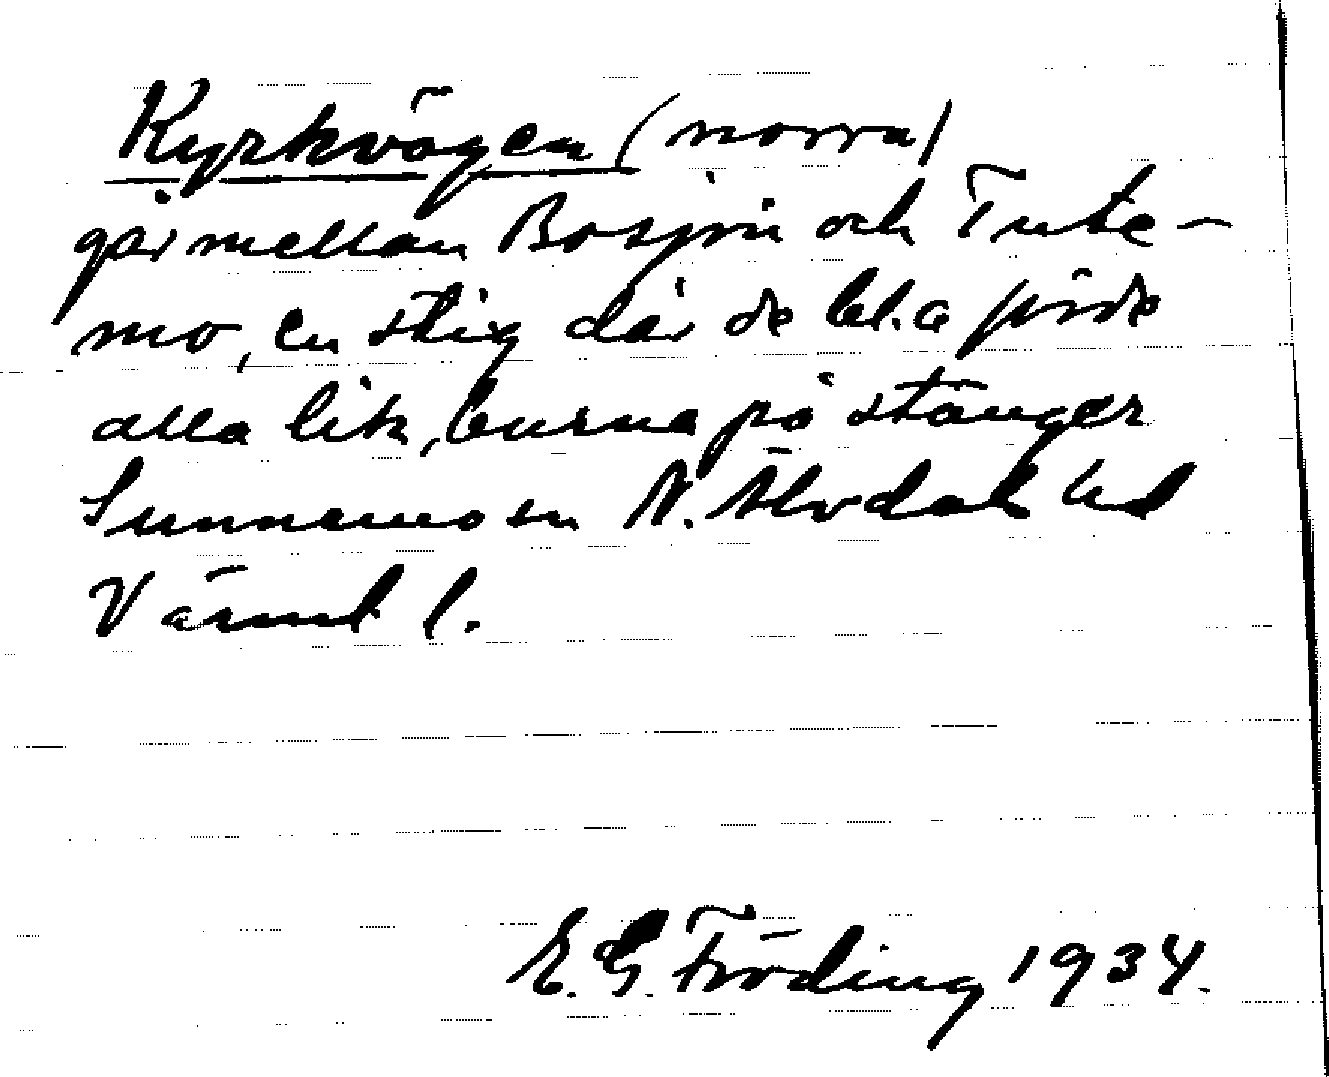 Kyrkvägen (norra)
går mellan Bosjön och Tute-
mo, en stig där de bl.a förde
alla lik, burna på stänger
Sunnemo sn N. Älvdals hd
Värml l.
E. G. Fröding 1934.